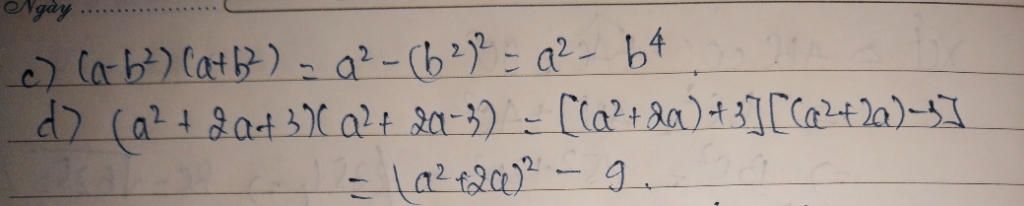 Ngày ....................
c) (a-b²)(a+b²) = a² - (b²)² = a² - b⁴.
d) (a² + 2a+3)(a² + 2a-3) = [(a²+2a)+3][(a²+2a)-3]
= (a²+2a)² - 9.